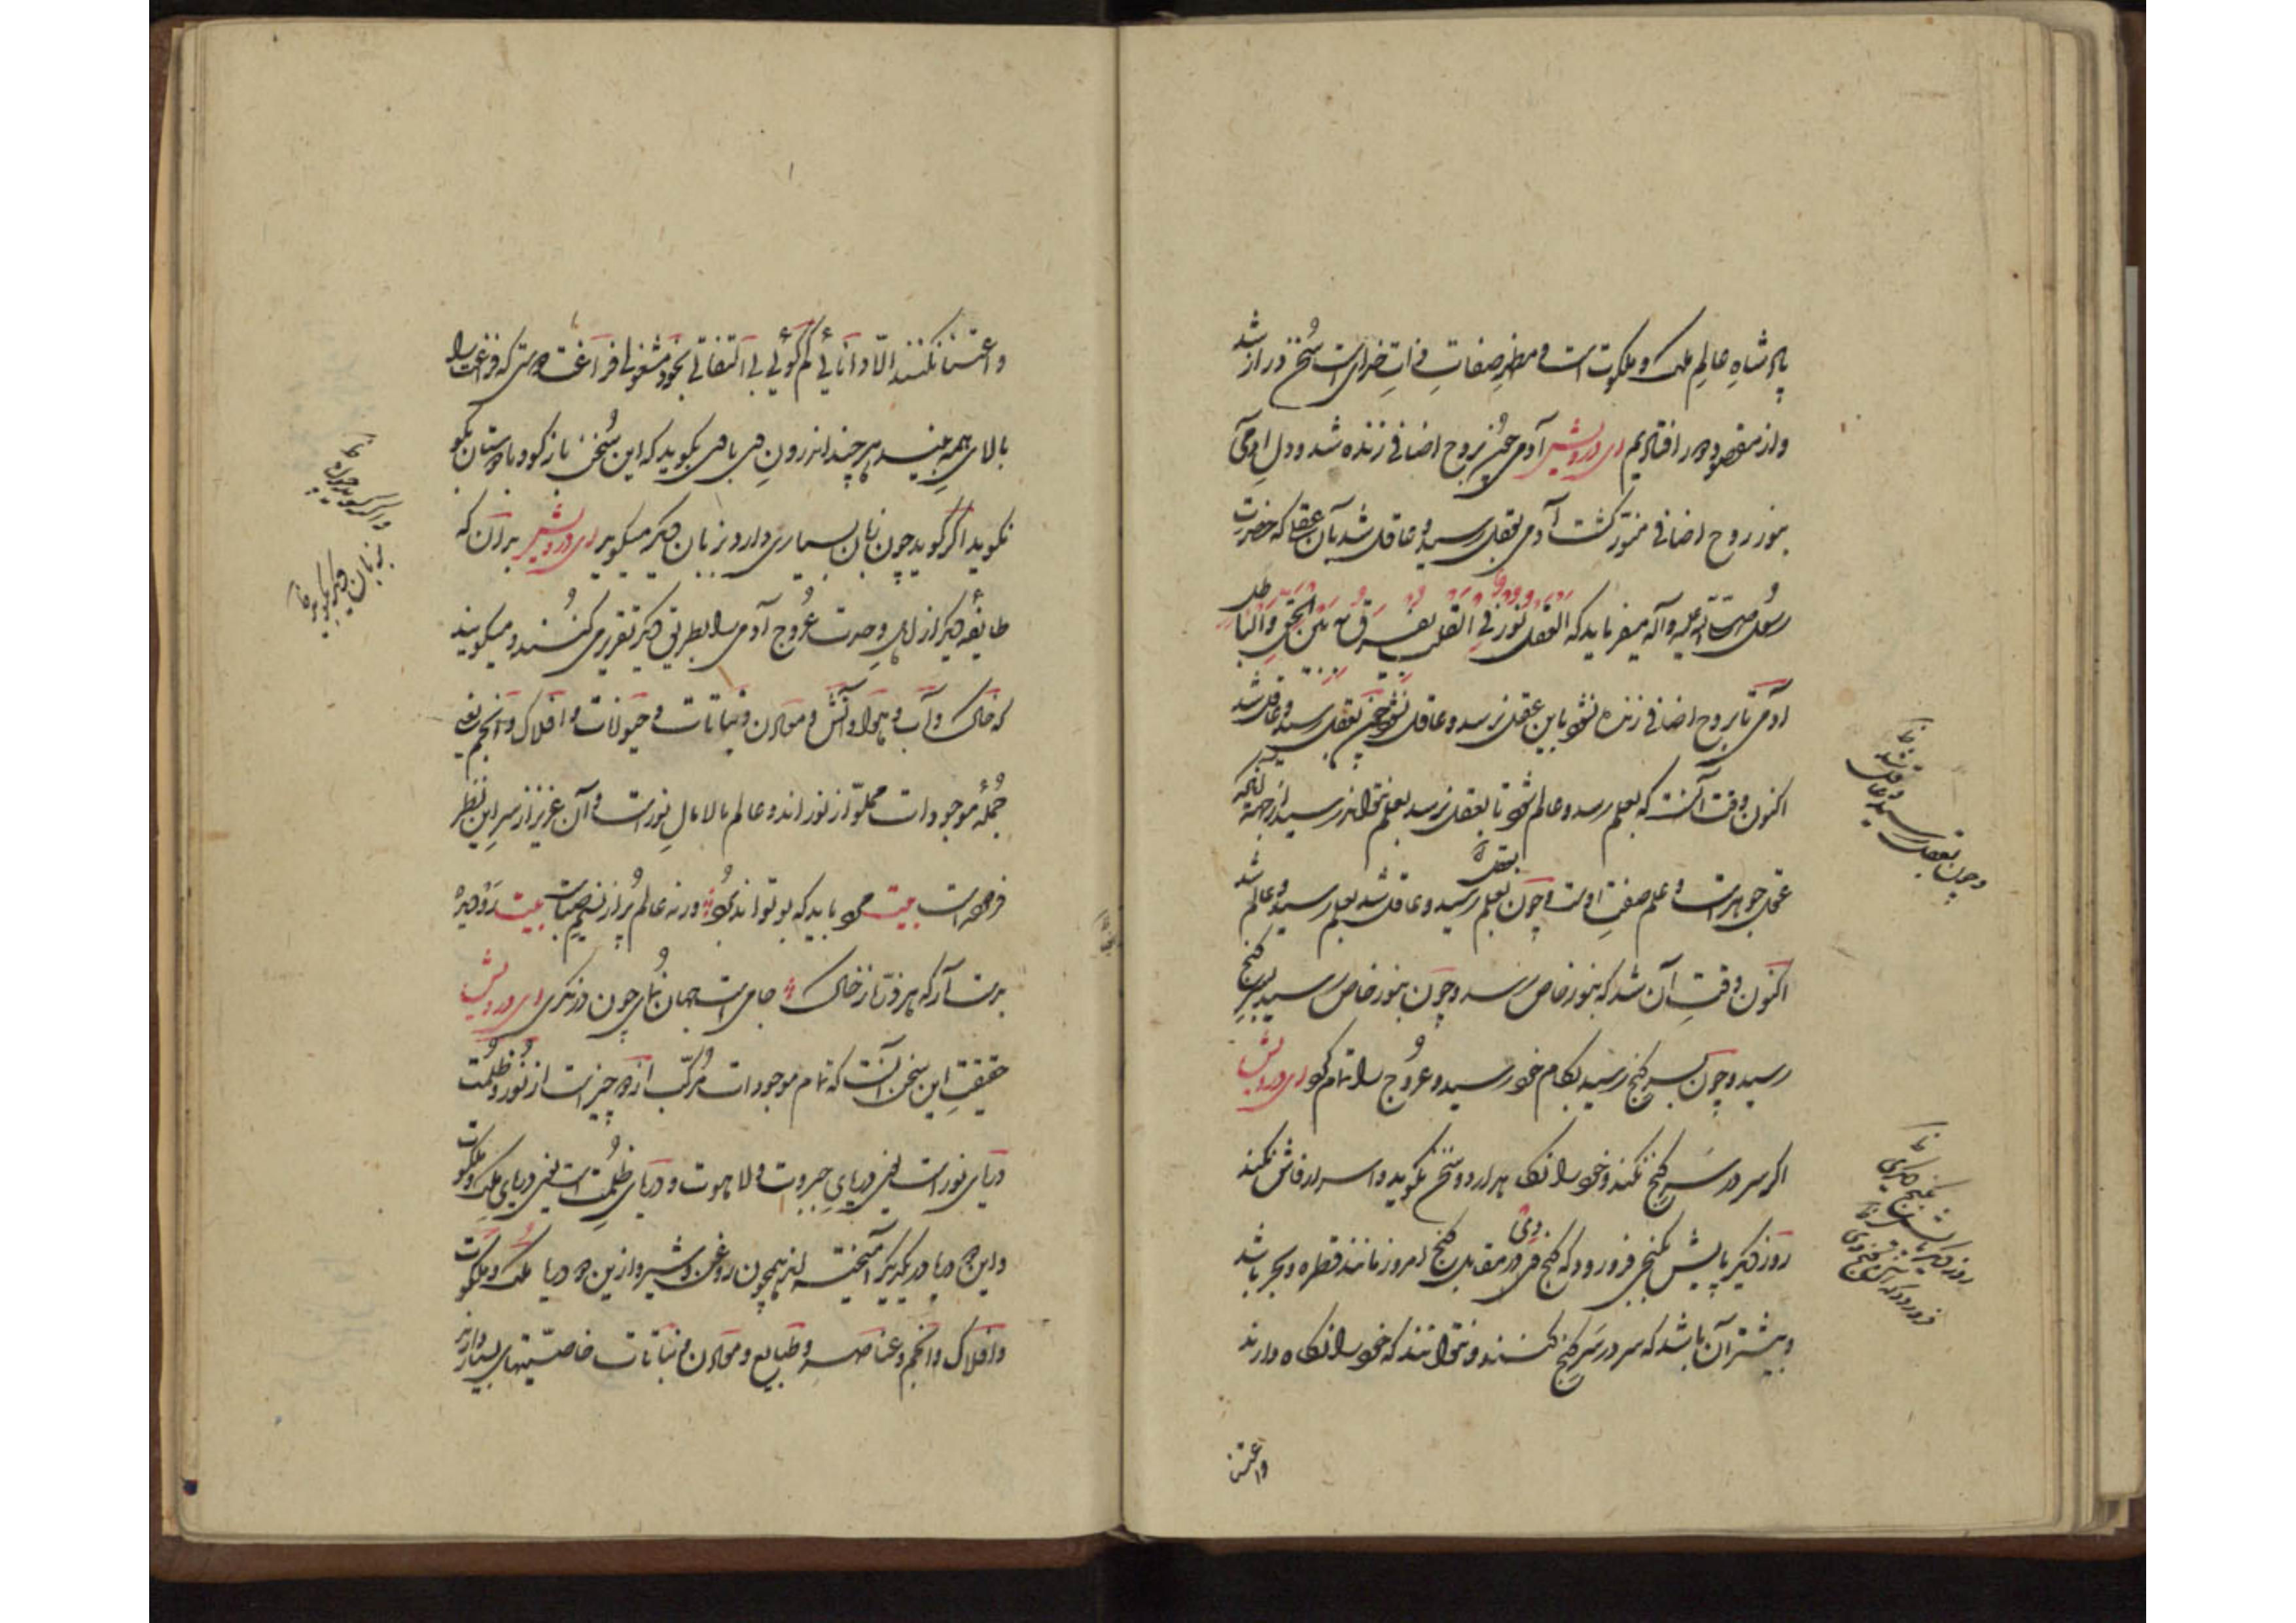 پادشاه عالم ملک و ملکوت است و مظهر صفات و ذات خدای است سخن دراز شد
و از مقصود دور افتادیم ای درویش آدمی چون بروح اضافی زنده شد و دل آدمی
بنور روح اضافی منور گشت آدمی بعقل رسید و عاقل شد بآن عقل که حضرت
رسول صلی الله علیه وآله میفرماید که العقل نور فی القلب یفرق به بین الحق والباطل
آدمی تا بروح اضافی زنده نشود باین عقل نرسد و عاقل نشود چون بعقل رسید و عاقل شد
اکنون وقت آنست که بعلم رسد و عالم شود تا بعقل نرسد بعلم نتواند رسید از جهة آنکه
عقل جوهرست و علم صفت اوست و چون بعلم رسید و عاقل شد بعلم رسید و عالم شد
بعقل
اکنون وقت آن شد که بنور خاص رسد و چون بنور خاص رسید بسر گنج
رسید و چون بسر گنج رسید بکام خود رسید و عروج را تمام کرد ای درویش
اگر سر در سر گنج نکند و خود را نگاه دارد و سخن نگوید و اسرار فاش نکند
روز دیگر پایش بگنجی فرورود که گنج دی در مقابل گنج امروز مانند قطره و بحر باشد
و بیشتر آن باشد که سر در سر گنج کنند و نتوانند که خود را نگاه دارند
واعتنا
و چون بعقل رسید و عاقل شد
روز دیگر پایش بگنج دیگری
فرورود که آن گنج دی
واعتنا نکنند الا دانائی کم گوئی بی التفاتی بخود مشغولی فراغت دوستی که فراغت را
بالای همه بیند هر چند اندرون وی با وی بگوید که این سخن بازگو و با دوستان بگو
نگوید اگر گوید چون زبان بسیاری دارد بزبان دیگر میگوید ای درویش بدانکه
طایفه دیگر از اهل وحدت عروج آدمی را بطریق دیگر تقریر می کنند و میگویند
که خاک و آب و هوا و آتش و معادن و نباتات و حیوانات و افلاک و انجم یعنی
جمله موجودات مملو از نور اند و عالم مالامال نورست و آن عزیز از سر این نظر
فرموده است بیت می باید که بو تواند برد ورنه عالم پر از نسیم صباست بیت رو دیده
بدست آر که هر ذره ز خاک جامی است جهان نمای چون درنگری ای درویش
حقیقت این سخن آنست که تمام موجودات مرکب از دو چیزست از نور و ظلمت
دریای نورست یعنی دریای جبروت و لاهوت و دریای ظلمت است یعنی دریای ملک و ملکوت
و این دو دریا در یکدیگر آمیخته اند همچون روغن و شیر و ازین دو دریا ملک و ملکوت
و افلاک و انجم و عناصر و طبایع و معادن و نباتات خاصیتهای بسیار دارند
و اگر گوید چون
بزبان دیگر بگوید